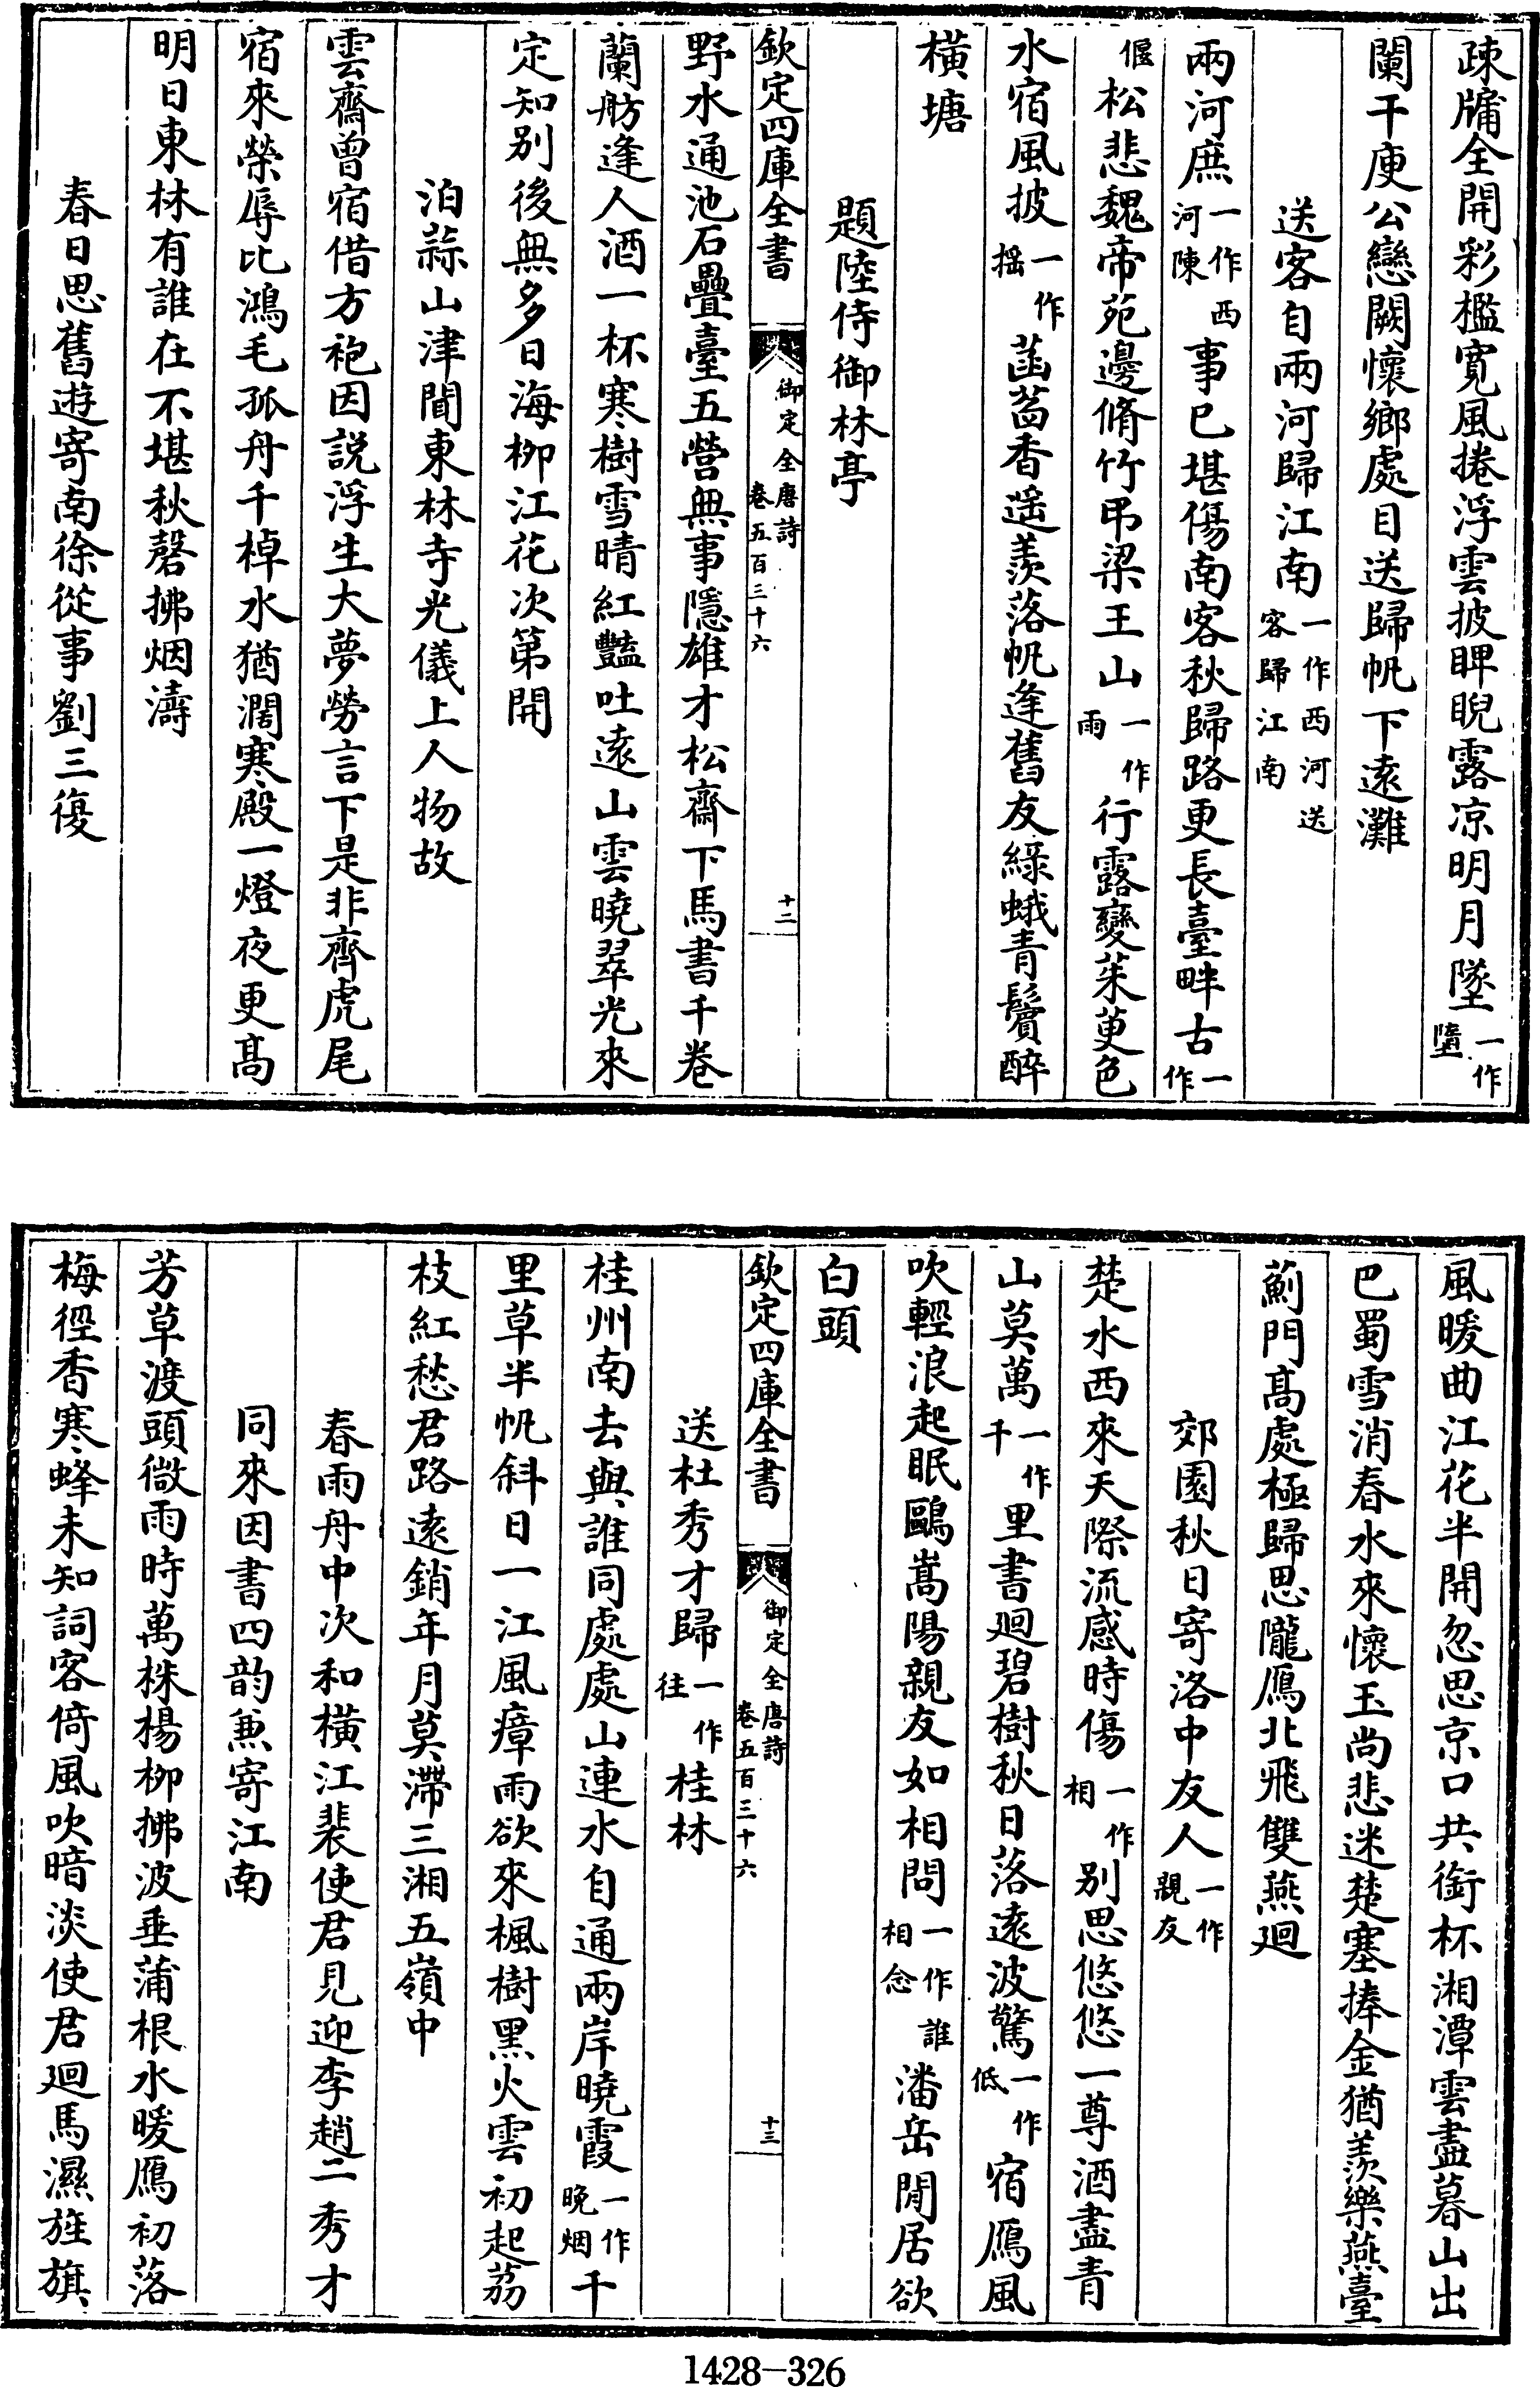 疎牗全開彩檻寛風捲浮雲披睥睨露凉明月墜一作墮
闌干庾公戀闕懷鄉處目送歸帆下遠灘
送客自兩河歸江南一作西河送客歸江南
兩河庶一作西河陳事已堪傷南客秋歸路更長臺畔古一作
偃松悲魏帝苑邊脩竹弔梁王山一作雨行露變茱萸色
水宿風披一作摇菡萏香遥羡落帆逢舊友緑蛾青鬢醉
横塘
題陸侍御林亭
欽定四庫全書 御定全唐詩卷五百三十六 十二
野水通池石疊臺五營無事隱雄才松齋下馬書千卷
蘭舫逢人酒一杯寒樹雪晴紅豔吐遠山雲曉翠光來
定知别後無多日海柳江花次第開
泊蒜山津聞東林寺光儀上人物故
雲齋曾宿借方袍因説浮生大夢勞言下是非齊虎尾
宿來榮辱比鴻毛孤舟千棹水猶濶寒殿一燈夜更髙
明日東林有誰在不堪秋磬拂烟濤
春日思舊遊寄南徐從事劉三復
風暖曲江花半開忽思京口共銜杯湘潭雲盡暮山出
巴蜀雪消春水來懷玉尚悲迷楚塞捧金猶羡樂燕臺
薊門髙處極歸思隴鴈北飛雙燕廻
郊園秋日寄洛中友人一作親友
楚水西來天際流感時傷一作相别思悠悠一尊酒盡青
山莫萬一作千里書廻碧樹秋日落遠波驚一作低宿鴈風
吹輕浪起眠鷗嵩陽親友如相問一作誰相念潘岳閒居欲
白頭
欽定四庫全書 御定全唐詩卷五百三十六 十三
送杜秀才歸一作往桂林
桂州南去與誰同處處山連水自通兩岸曉霞一作晚烟千
里草半帆斜日一江風瘴雨欲來楓樹黑火雲初起荔
枝紅愁君路遠銷年月莫滯三湘五嶺中
春雨舟中次和横江裴使君見迎李趙二秀才
同來因書四韵兼寄江南
芳草渡頭微雨時萬株楊柳拂波垂蒲根水暖鴈初落
梅徑香寒蜂未知詞客倚風吹暗淡使君廻馬濕旌旗
1428-326